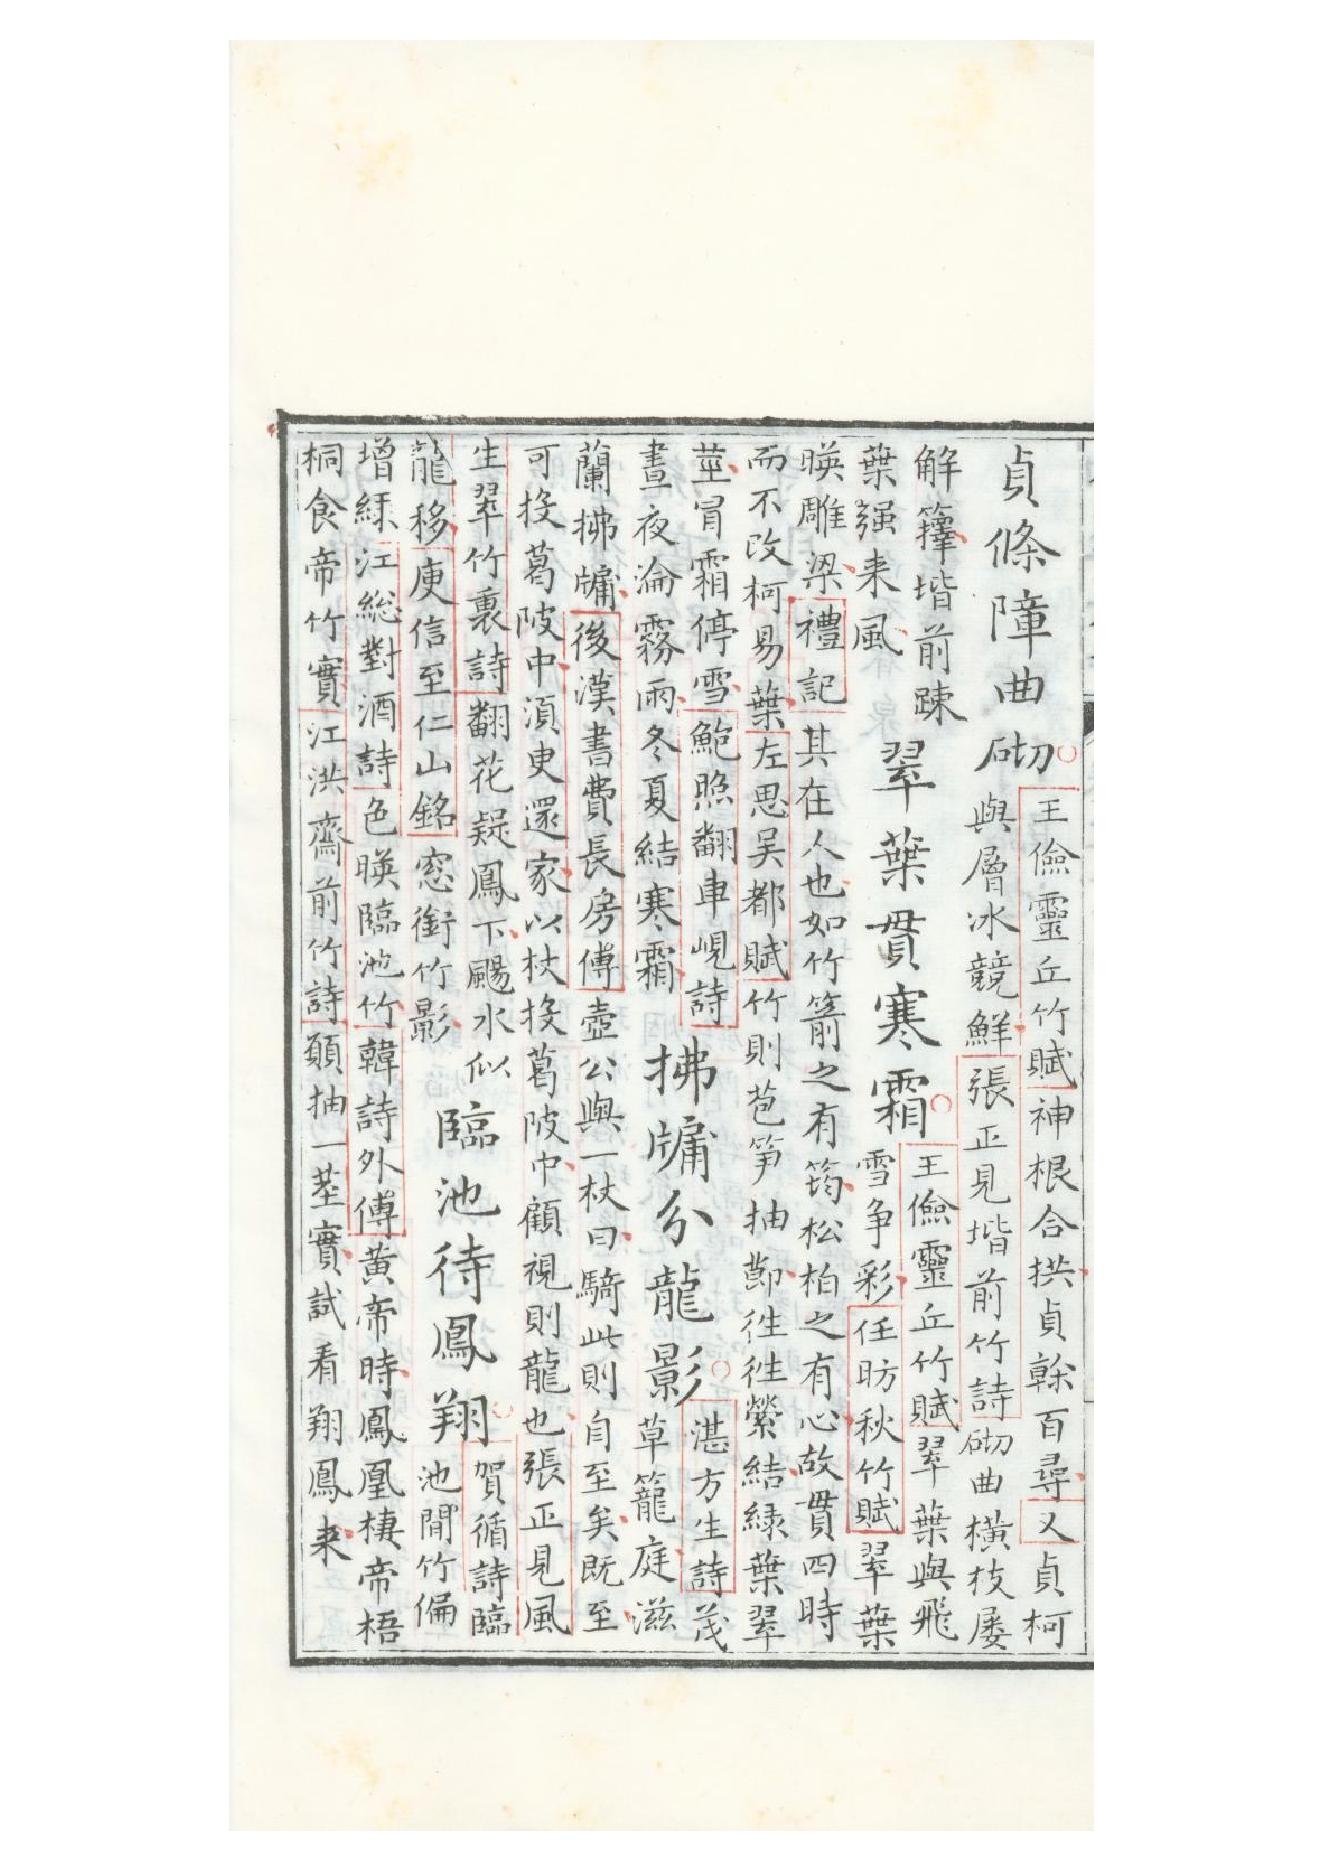 貞條障曲砌
王儉靈丘竹賦神根合拱貞幹百尋又貞柯
與層冰競鮮張正見堦前竹詩砌曲橫枝屡
解籜堦前踈
葉强来風
翠葉貫寒霜
王儉靈丘竹賦翠葉與飛
雪争彩任昉秋竹賦翠葉
暎雕梁禮記其在人也如竹箭之有筠松柏之有心故貫四時
而不改柯易葉左思吴都賦竹則苞笋抽莭徃徃縈結緑葉翠
莖冒霜停雪鮑照翻車峴詩
晝夜淪霧雨冬夏結寒霜
拂牖分龍影
湛方生詩茂
草籠庭滋
蘭拂牖後漢書費長房傅壺公與一杖曰騎此則自至矣既至
可投葛陂中湏吏還家以杖投葛陂中顧視則龍也張正見風
生翠竹裏詩翻花疑鳳下颺水似
龍移庾信至仁山銘窓銜竹影
臨池待鳳翔
賀循詩臨
池閒竹偏
增緑江総對酒詩色暎臨池竹韓詩外傅黄帝時鳳凰棲帝梧
桐食帝竹實江洪齋前竹詩願抽一莖實試看翔鳳来